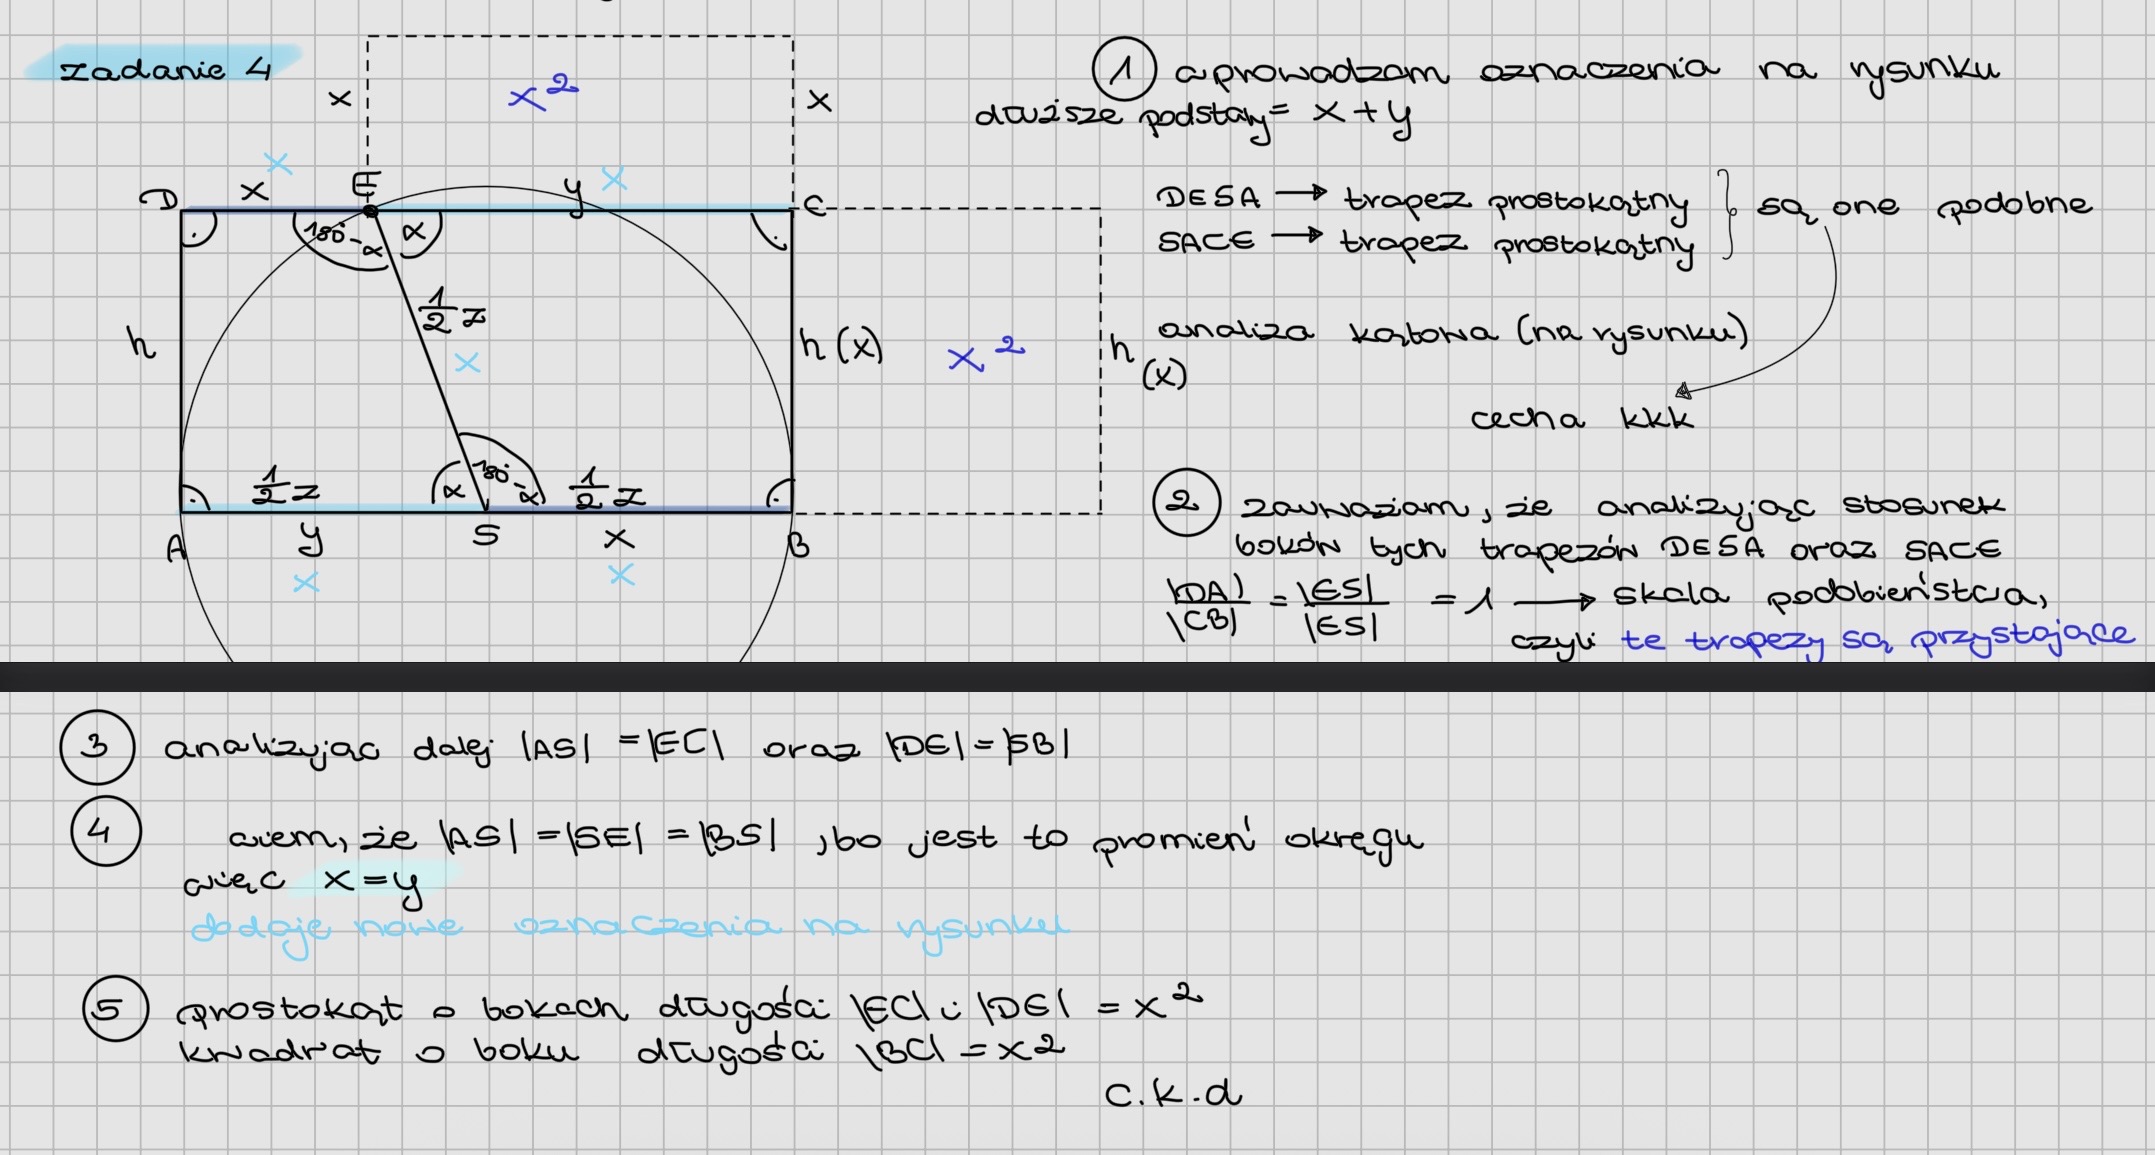 zadanie 4
x
x²
x
x
x
D
x
E
y
x
C
180-α
α
½z
x
h
h (x)
x²
h
(x)
½z
α
180-α
½z
A
y
S
x
B
x
x
① wprowadzam oznaczenia na rysunku
dłuższe podstawy = x + y
DESA → trapez prostokątny
SACE → trapez prostokątny
są one podobne
analiza kątowa (na rysunku)
cecha kkk
② zauważam, że analizując stosunek
boków tych trapezów DESA oraz SACE
|DA|/|CB| = |ES|/|ES| = 1 → skala podobieństwa,
czyli te trapezy są przystające
③ analizując dalej |AS| = |EC| oraz |DE| = |SB|
④ wiem, że |AS| = |SE| = |BS|, bo jest to promień okręgu
więc x = y
dodaję nowe oznaczenia na rysunku
⑤ prostokąt o bokach długości |EC| i |DE| = x²
kwadrat o boku długości |BC| = x²
c.k.d